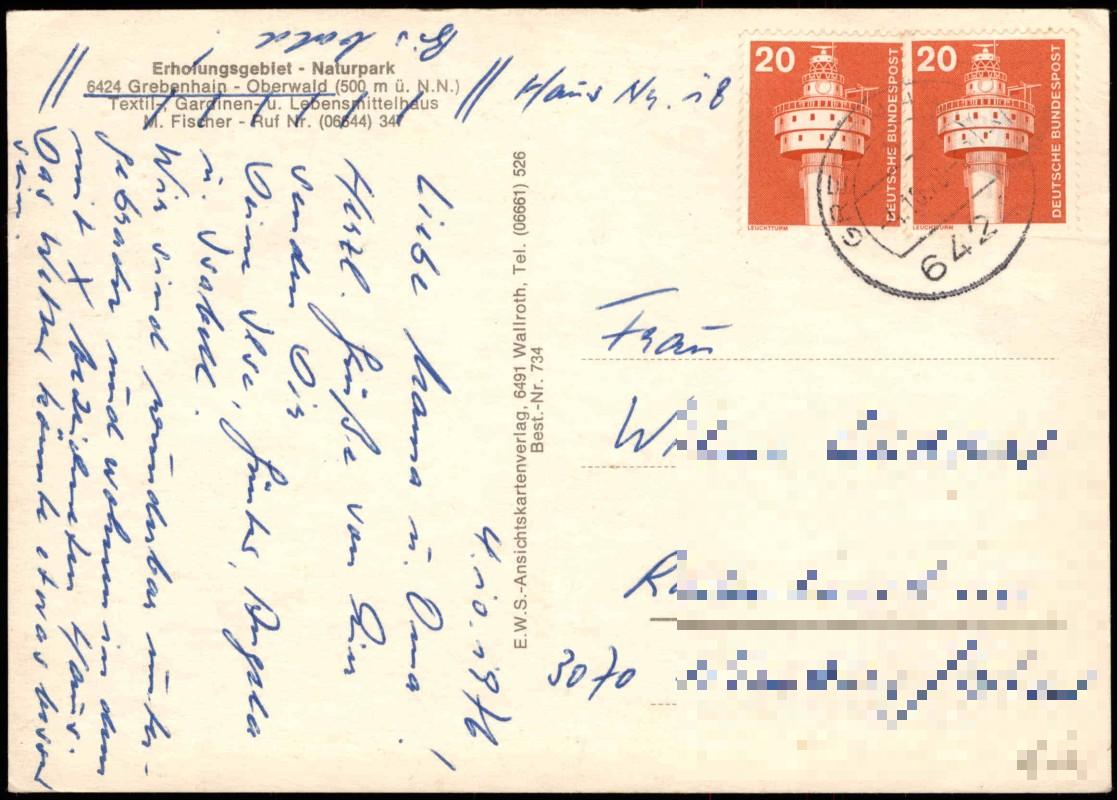 Erholungsgebiet - Naturpark
6424 Grebenhain - Oberwald (500 m ü. N.N.)
Textil-, Gardinen- u. Lebensmittelhaus
M. Fischer - Ruf Nr. (06644) 347
Haus Nr. 18
20
DEUTSCHE BUNDESPOST
LEUCHTTURM
20
DEUTSCHE BUNDESPOST
LEUCHTTURM
GRE
642
E.W.S.-Ansichtskartenverlag, 6491 Wallroth, Tel. (06661) 526
Best.-Nr. 734
4.10.1976
Liebe Mama u. Oma!
Herzl. Grüße von hier
senden Dir
Deine Ilse, Günter, Angela
u. Isabell.
Wir sind wunderbar unter-
gebracht und wohnen in dem
mit X bezeichneten Haus.
Das Wetter könnte etwas besser
sein.
Bis bald
Frau
3070